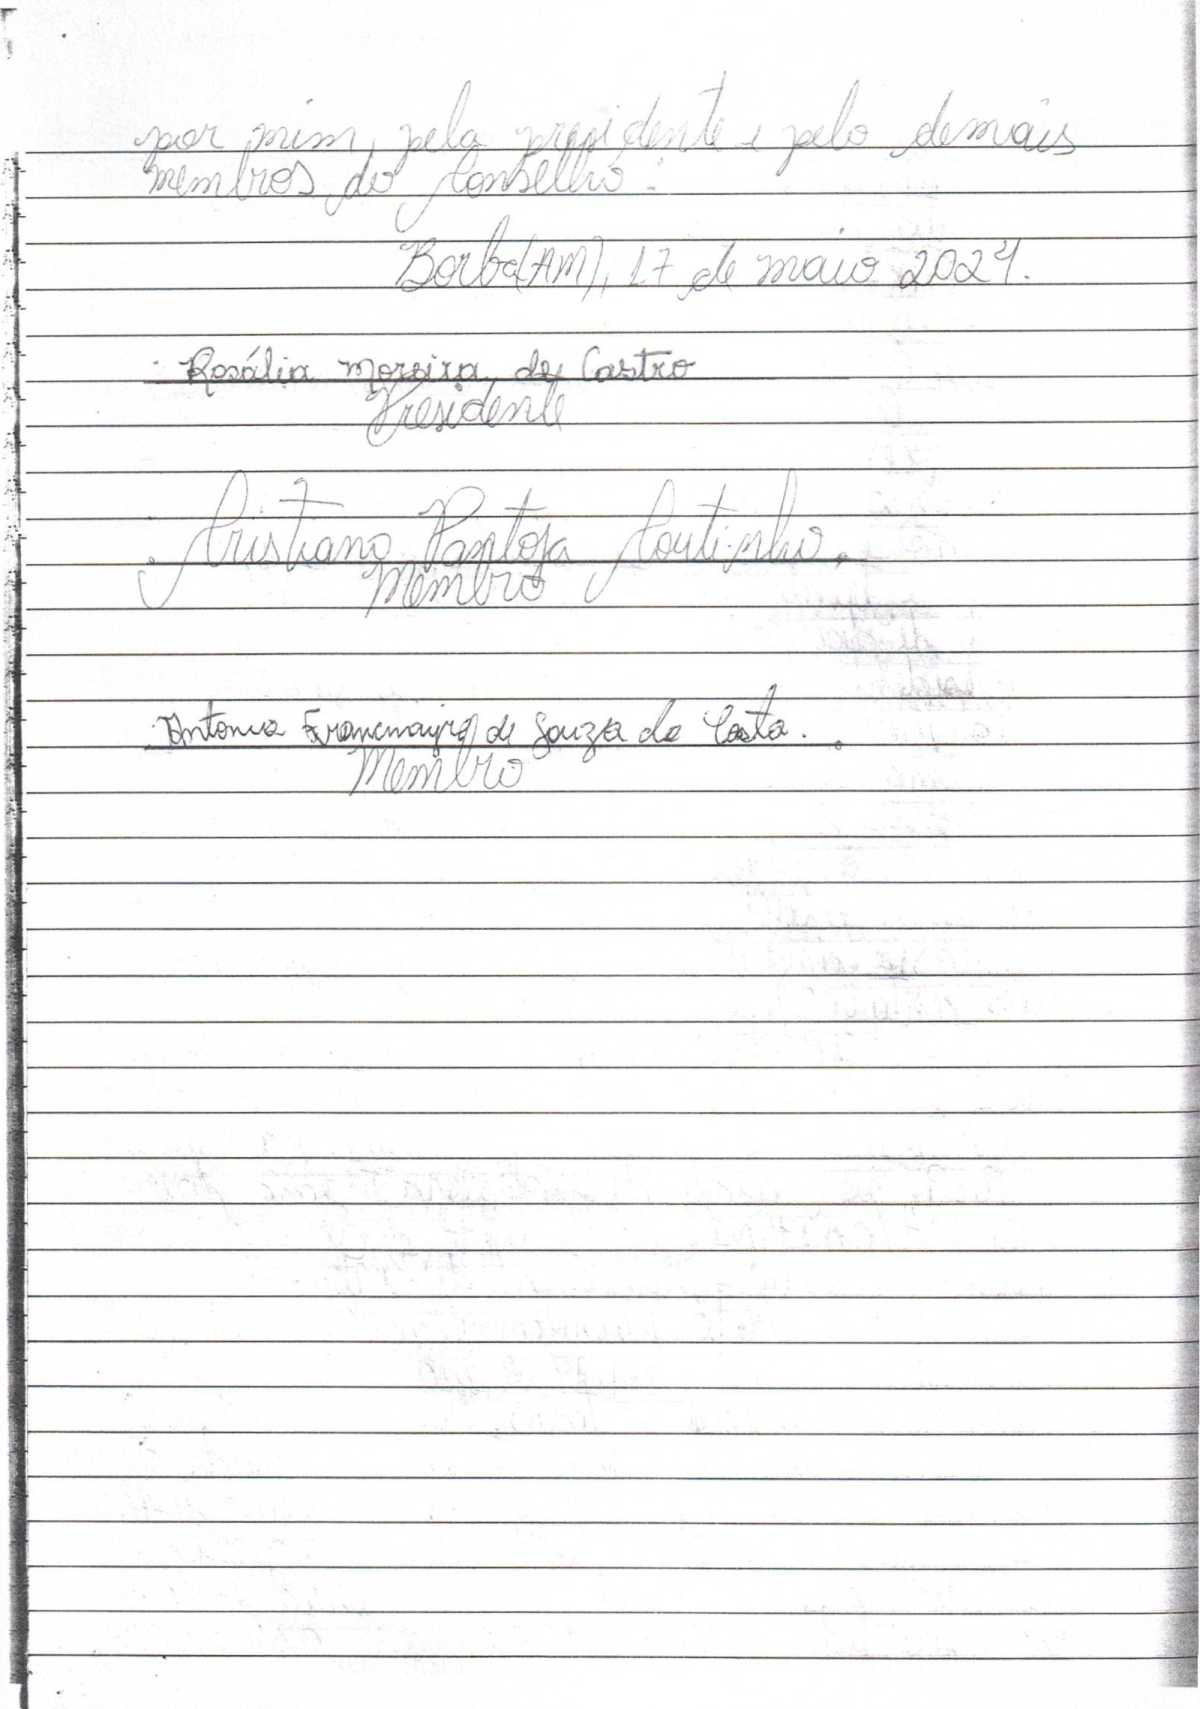 por mim, pela presidente e pelo demais
membros do Conselho.
Borba(AM), 17 de maio 2024.
Rosália Moreira de Castro
Presidente
Cristiano Pantoja Coutinho.
Membro
Antonia de Souza da Costa.
Membro